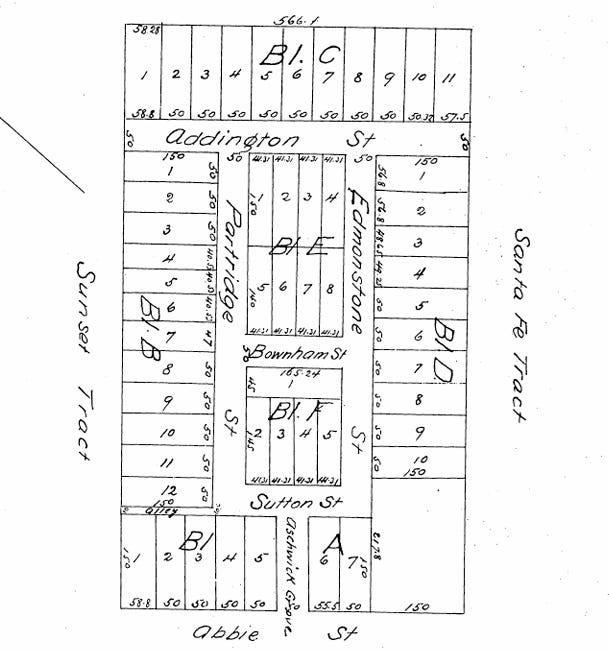 566.1
58.28
Bl. C
1 2 3 4 5 6 7 8 9 10 11
58.8 50 50 50 50 50 50 50 50 50.32 57.5
50 Addington St 50
150 50 41.31 41.31 41.31 41.31 50 150
Sunset Tract
Bl. B
1 50
2 50
3 50
4
5
6
7 47
8 50
9 50
10 50
11 50
12 50
150
Alley
Partridge St
Bl E
1 2 3 4
150
5 6 7 8
140
41.31 41.31 41.31 41.31
50 Bownham St
165.24
45 1
Bl. F
2 3 4 5
145
41.31 41.31 41.31 41.31
Sutton St
Edmonstone St
Bl D
56.8 1
56.8 2
3
4
50 5
50 6
50 7
50 8
50 9
50 10
150
Santa Fe Tract
Bl A
150 1 2 3 4 5 6 7 150
217.8
58.8 50 50 50 50 55.5 50 150
Aschwick Grove
50
Abbie St